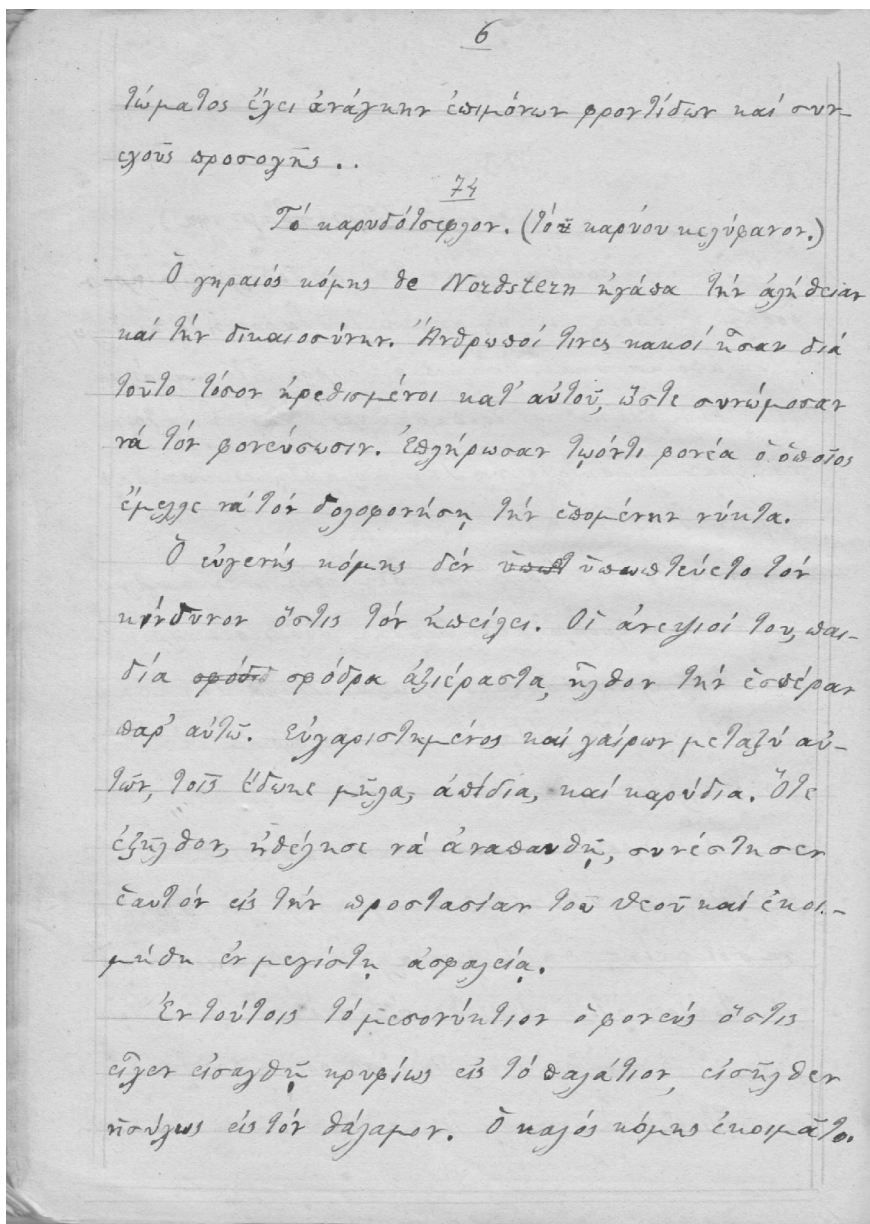 6
τώματος ἔχει ἀνάγκην ἐπιμόνων φροντίδων καί συν-
εχοῦς προσοχῆς..
74
Τό καρυδότσεφλον. (τοῦ καρύου κελύφανον.)
Ὁ γηραιός κόμης de Nordstern ἠγάπα τήν ἀλήθειαν
καί τήν δικαιοσύνην. Ἄνθρωποί τινες κακοί ἦσαν διά
τοῦτο τόσον ἠρεθισμένοι κατ' αὐτοῦ, ὥστε συνώμοσαν
νά τόν φονεύσωσιν. Ἐπλήρωσαν τῳόντι φονέα ὁ ὁποῖος
ἔμελλε νά τόν δολοφονήσῃ τήν ἑπομένην νύκτα.
Ὁ εὐγενής κόμης δέν ὑπωπτεύετο τόν
κίνδυνον ὅστις τόν ἠπείλει. Οἱ ἀνεψιοί του, παι-
δία σφόδρα ἀξιέραστα, ἦλθον τήν ἑσπέραν
παρ' αὐτῷ. Εὐχαριστημένος καί χαίρων μεταξύ αὐ-
τῶν, τοῖς ἔδωκε μῆλα, ἀπίδια, καί καρύδια. Ὅτε
ἐξῆλθον, ἠθέλησε νά ἀναπαυθῇ, συνέστησεν
ἑαυτόν εἰς τήν προστασίαν τοῦ θεοῦ καί ἐκοι-
μήθη ἐν μεγίστῃ ἀσφαλείᾳ.
Ἐν τούτοις τό μεσονύκτιον ὁ φονεύς ὅστις
εἶχεν εἰσαχθῆ κρυφίως εἰς τό παλάτιον, εἰσῆλθεν
ἡσύχως εἰς τόν θάλαμον. Ὁ καλός κόμης ἐκοιμᾶτο.